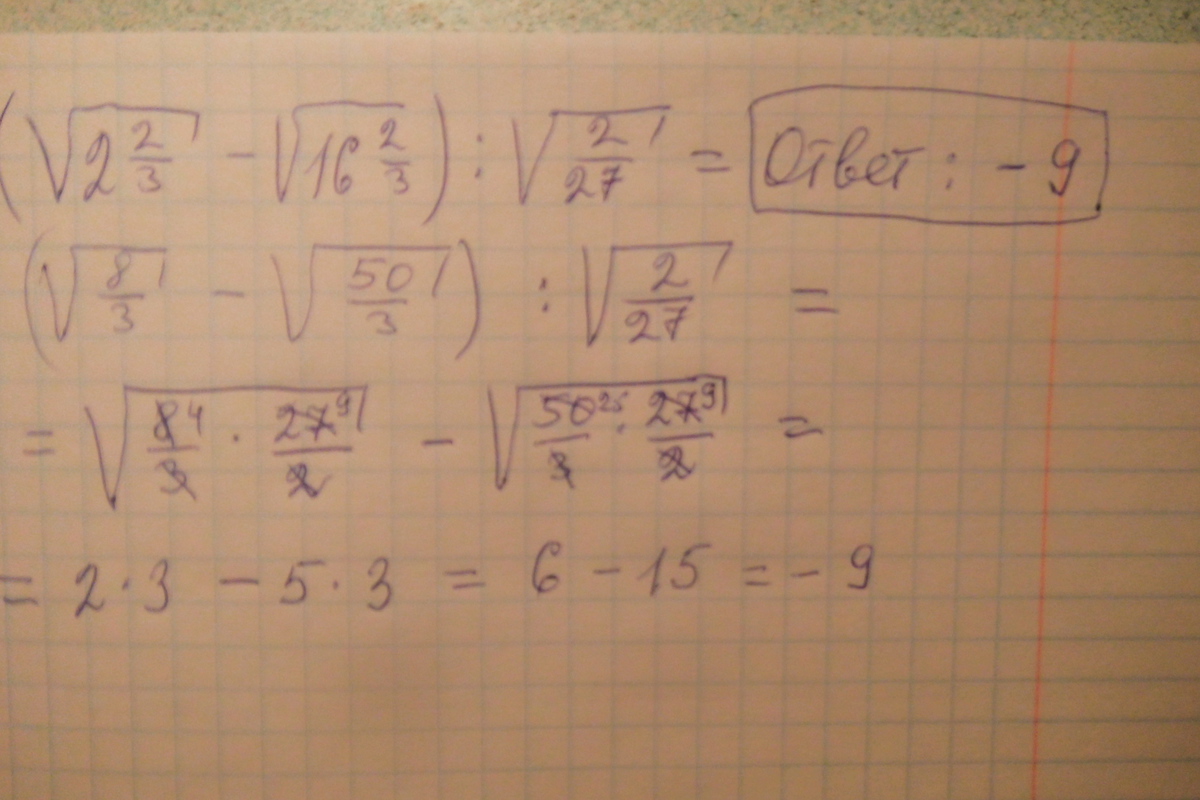 (√2 2/3 - √16 2/3) : √2/27 = Ответ : - 9
(√8/3 - √50/3) : √2/27 =
= √8⁴/3 · 27⁹/2 - √50²⁵/3 · 27⁹/2 =
= 2·3 - 5·3 = 6 - 15 = - 9